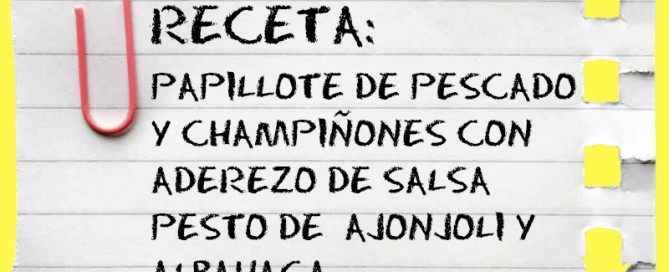 RECETA:
PAPILLOTE DE PESCADO
Y CHAMPIÑONES CON
ADEREZO DE SALSA
PESTO DE AJONJOLI Y
ALBAHACA